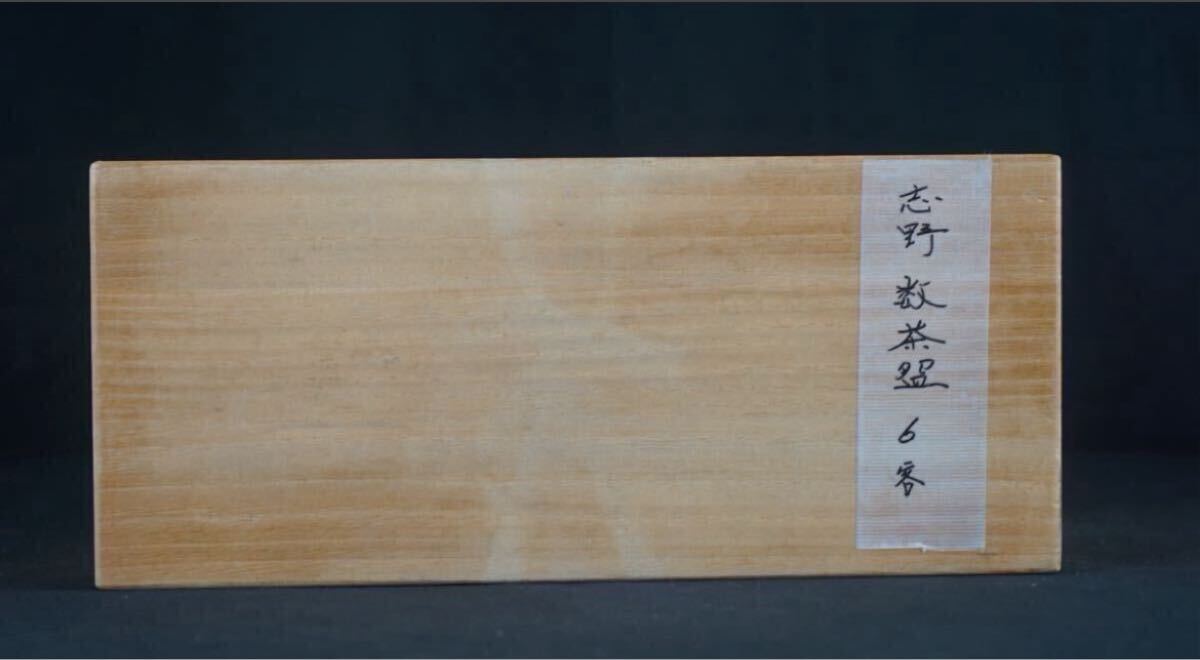 志野 数茶盌 6客